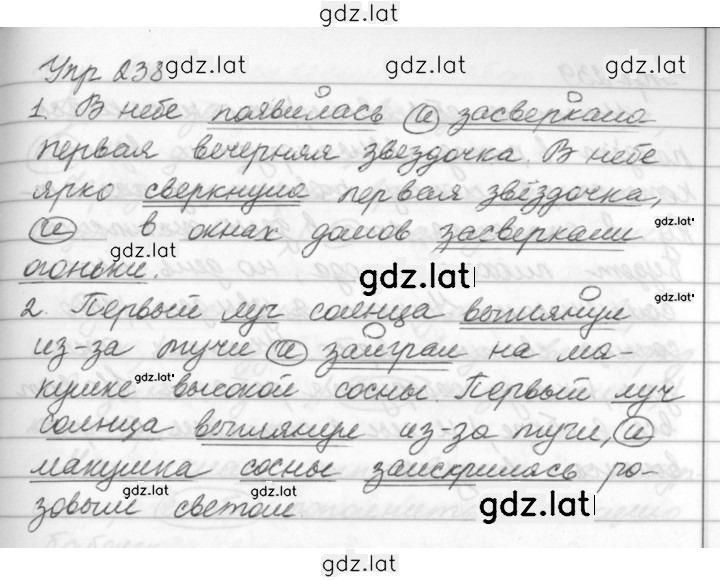 gdz.lat
Упр 238 gdz.lat gdz.lat gdz.lat
1. В небе появилась и засверкала
первая вечерняя звёздочка. В небе
ярко сверкнула первая звёздочка,
и в окнах домов засверкали gdz.lat
огоньки. gdz.lat gdz.lat
2. Первый луч солнца выглянул gdz.lat
из-за тучи и заиграл на ма-
кушке gdz.lat высокой сосны. Первый луч
солнца выглянул из-за тучи, и
макушка сосны заискрилась ро-
зовым светом gdz.lat gdz.lat gdz.lat
gdz.lat